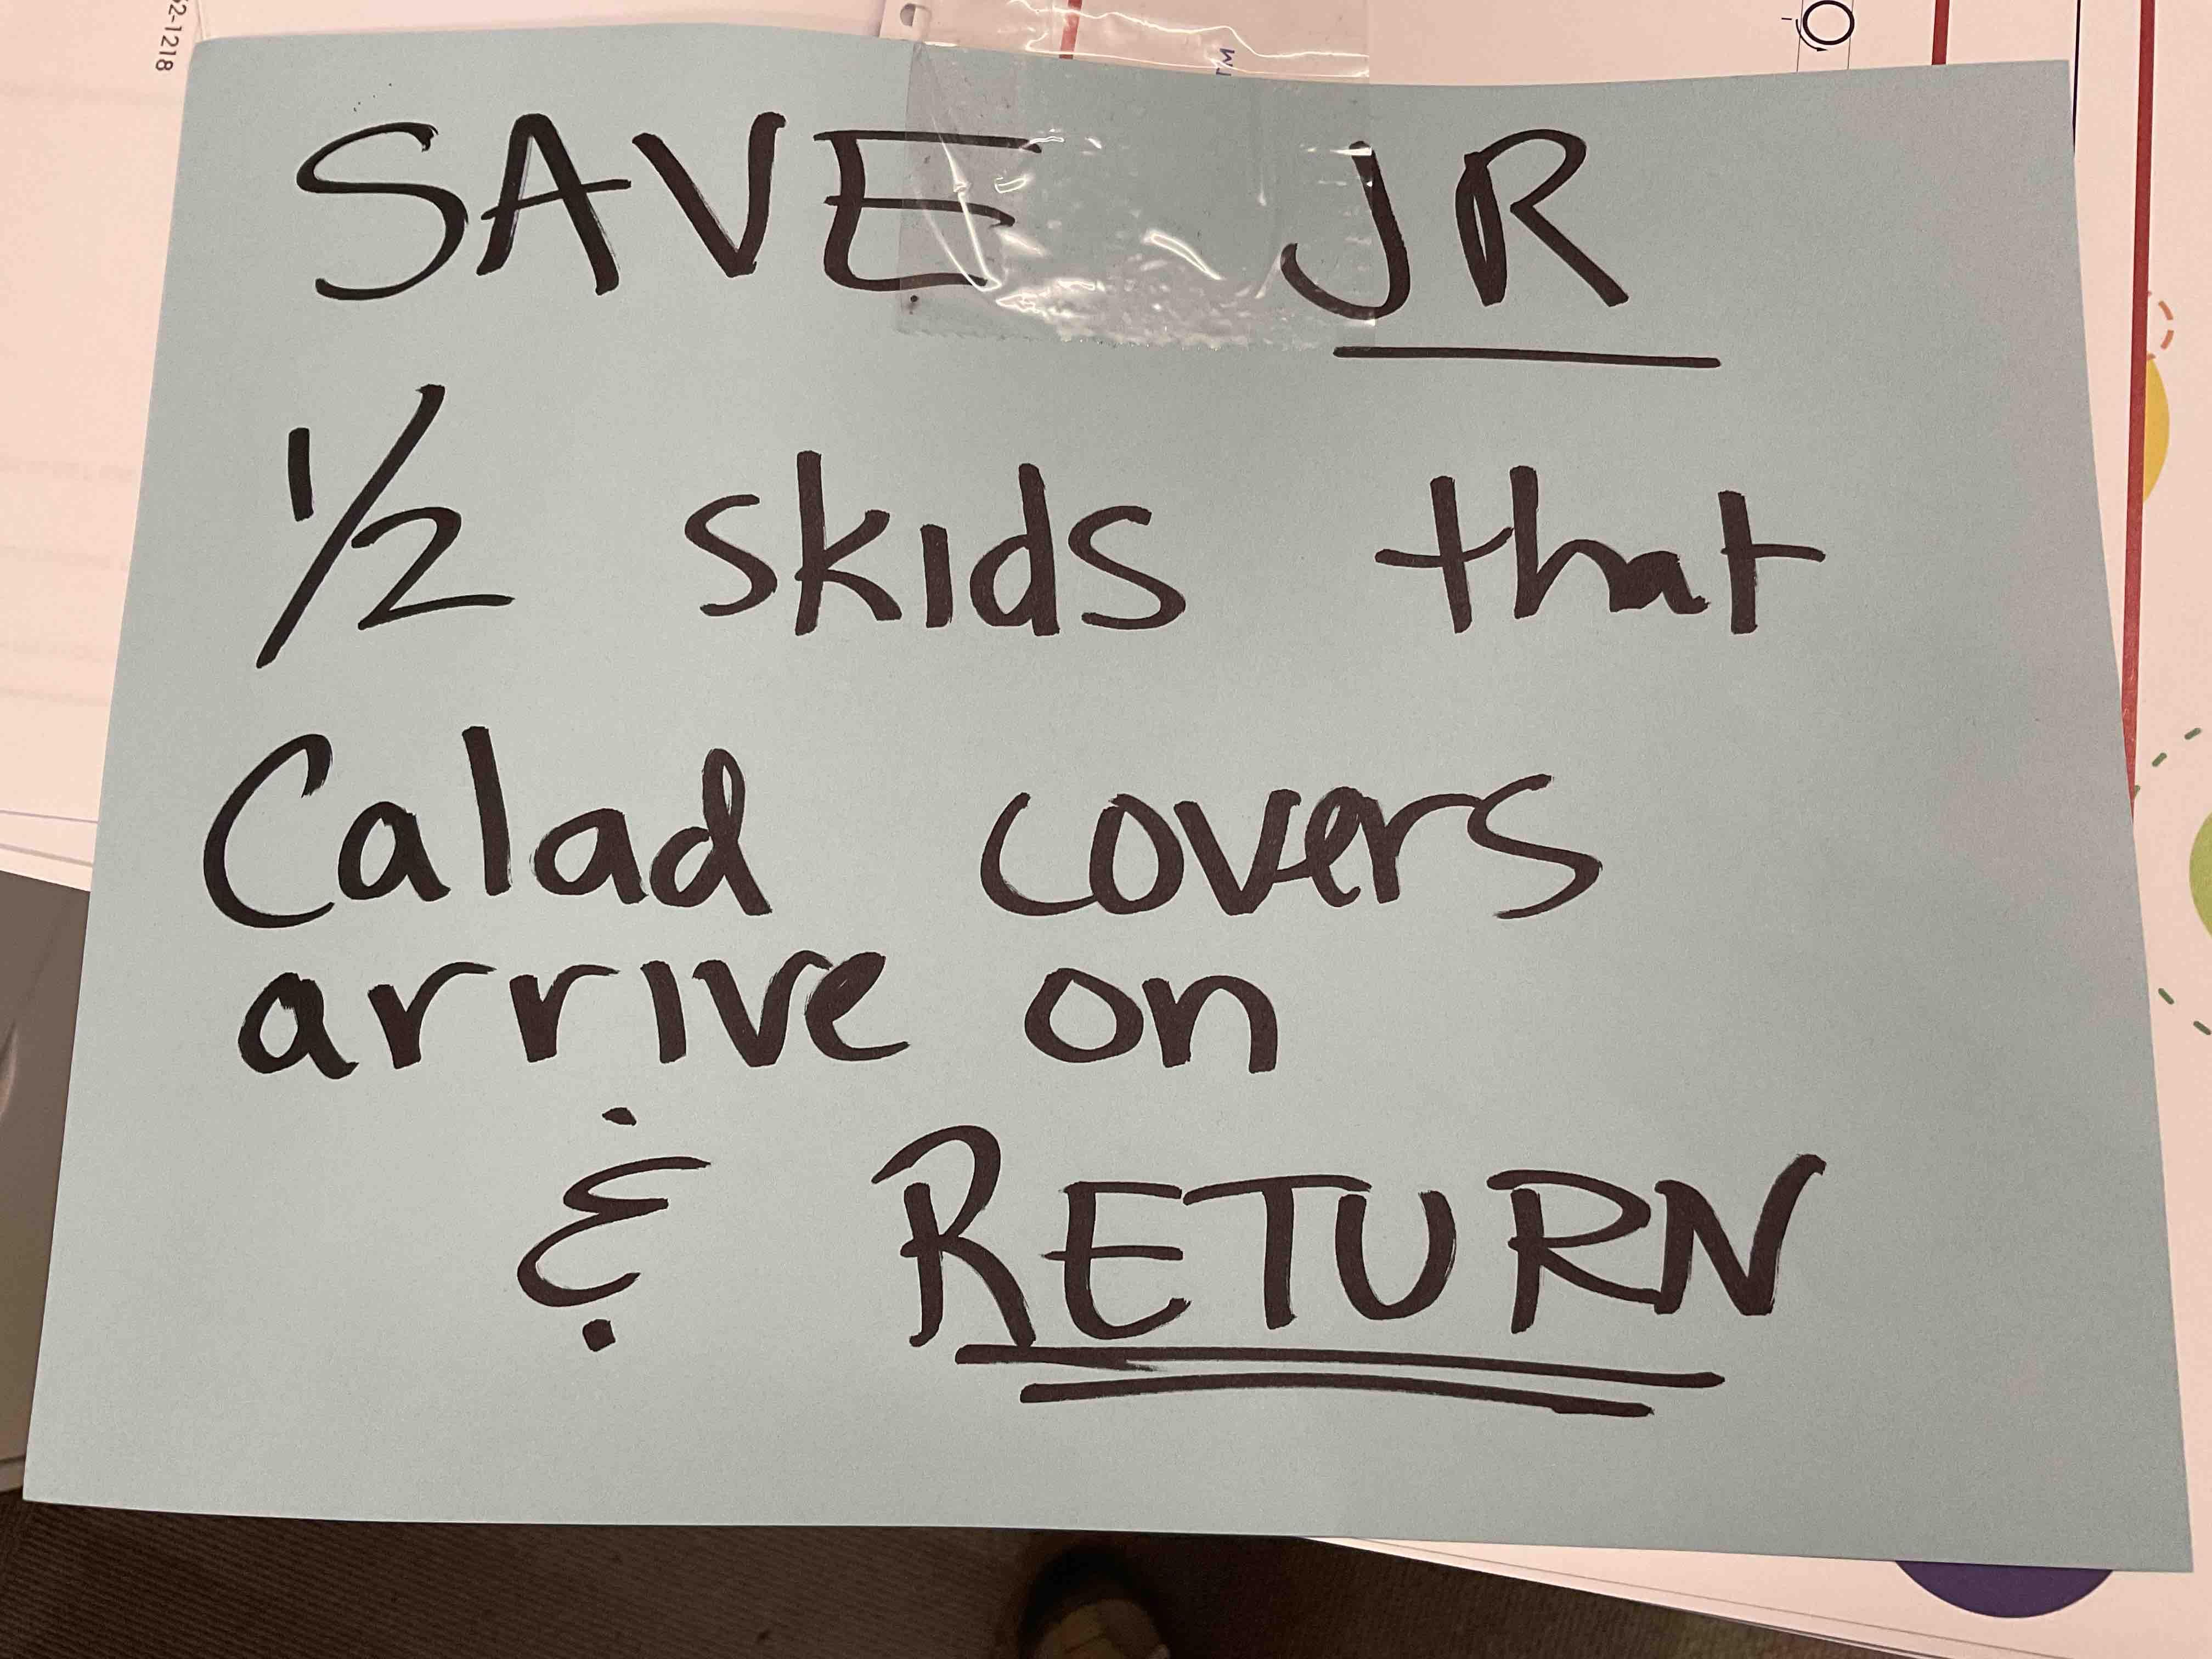 52-1218
SAVE JR
1/2 skids that
Calad covers
arrive on
& RETURN